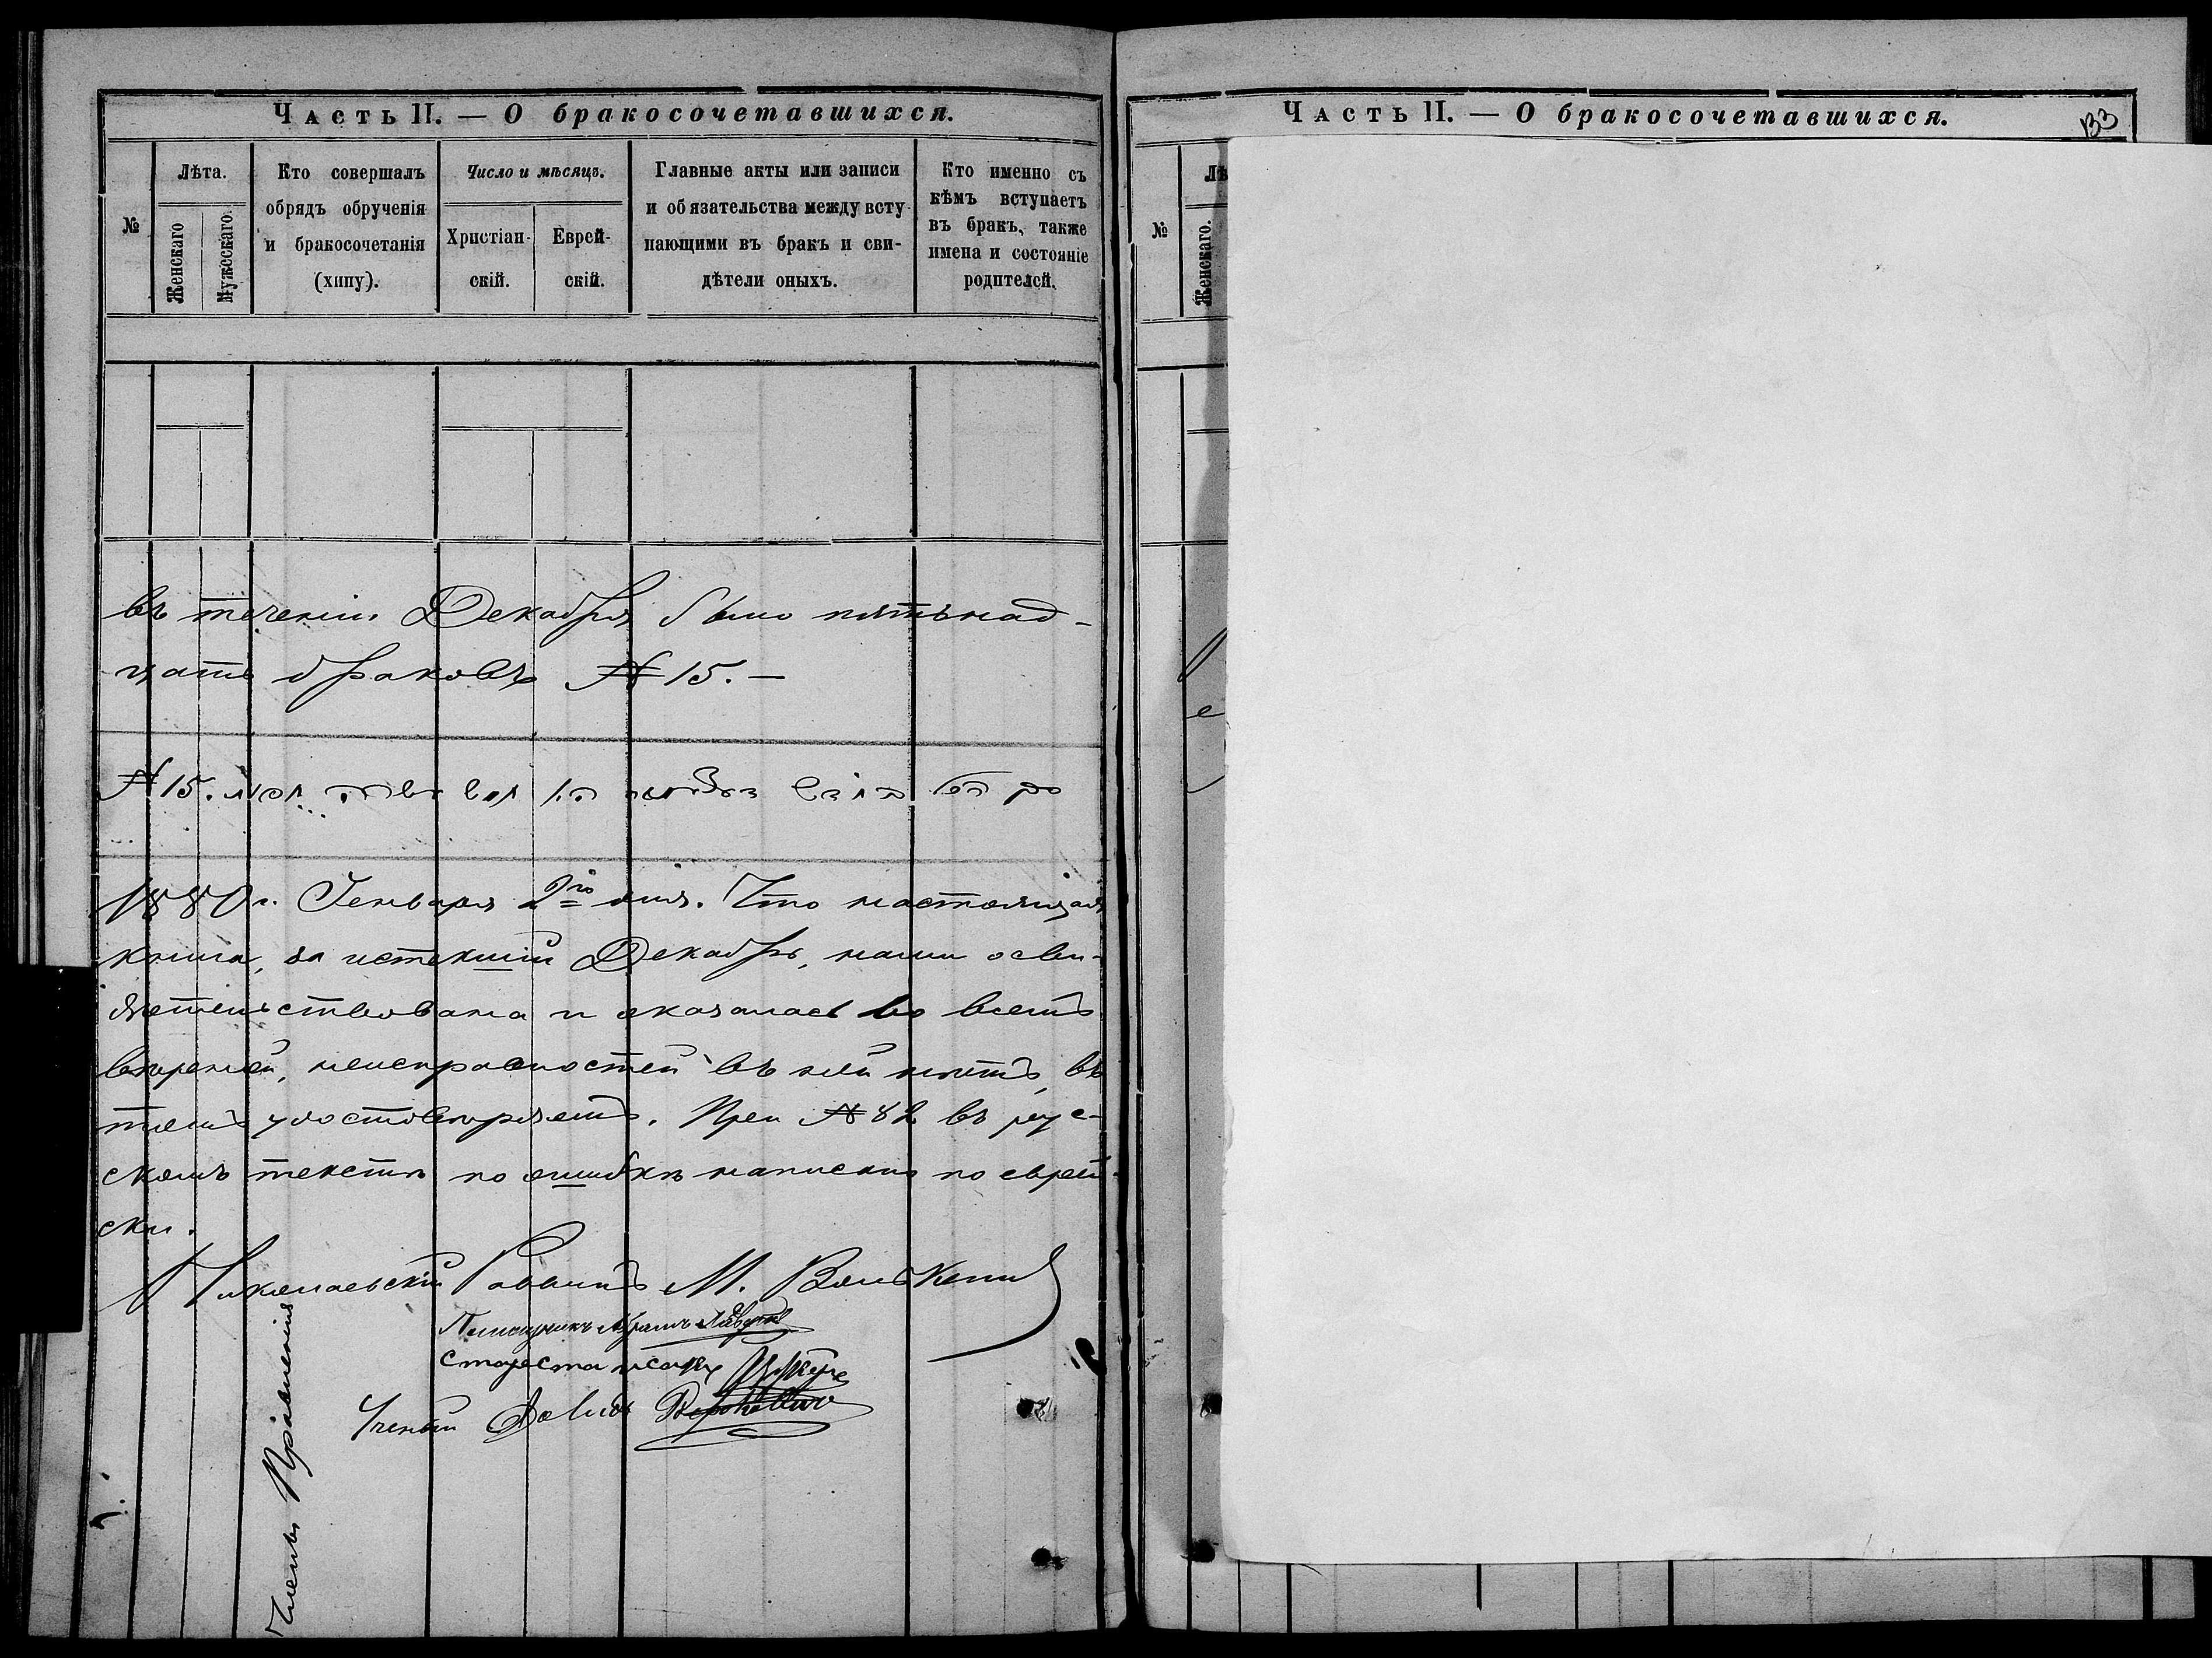 Часть II. — О бракосочетавшихся.
№
Лѣта.
Женскаго
Мужескаго.
Кто совершалъ
обрядъ обрученія
и бракосочетанія
(хипу).
Число и мѣсяцъ.
Христіан-
скій.
Еврей-
скій.
Главные акты или записи
и обязательства между всту-
пающими въ бракъ и сви-
дѣтели оныхъ.
Кто именно съ
кѣмъ вступаетъ
въ бракъ, также
имена и состояніе
родителей.
въ теченіи Декабря было пятьнад-
цать браковъ № 15. —
№ 15.
1880 г. Генваря 2го дня. Что настоящая
книга, за истекшій Декабрь, нами осви-
дѣтельствована и оказалась во всемъ
вѣрной, неисправностей въ ней нѣтъ, въ
томъ удостовѣряемъ. При № 82 въ рус-
скомъ текстѣ по ошибкѣ написано по еврей-
ски.
Николаевскій Раввинъ М.
Абрамъ
Староста
Ученый Давидъ
Члены Правленія
Часть II. — О бракосочетавшихся.
133
№
Лѣ
Женскаго.